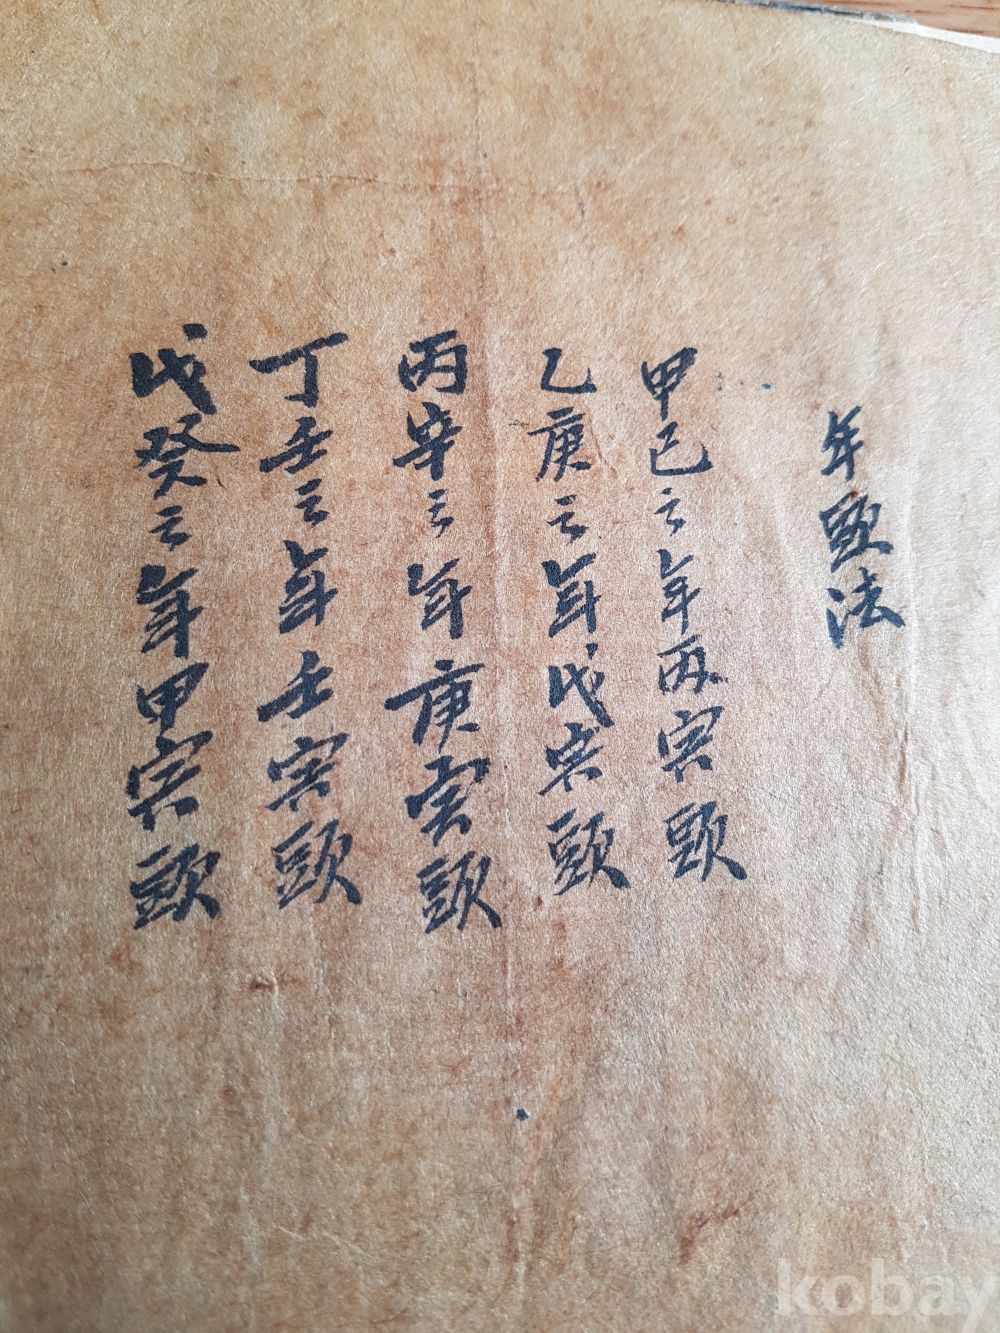 年頭法
甲己之年丙寅頭
乙庚之年戊寅頭
丙辛之年庚寅頭
丁壬之年壬寅頭
戊癸之年甲寅頭
kobay